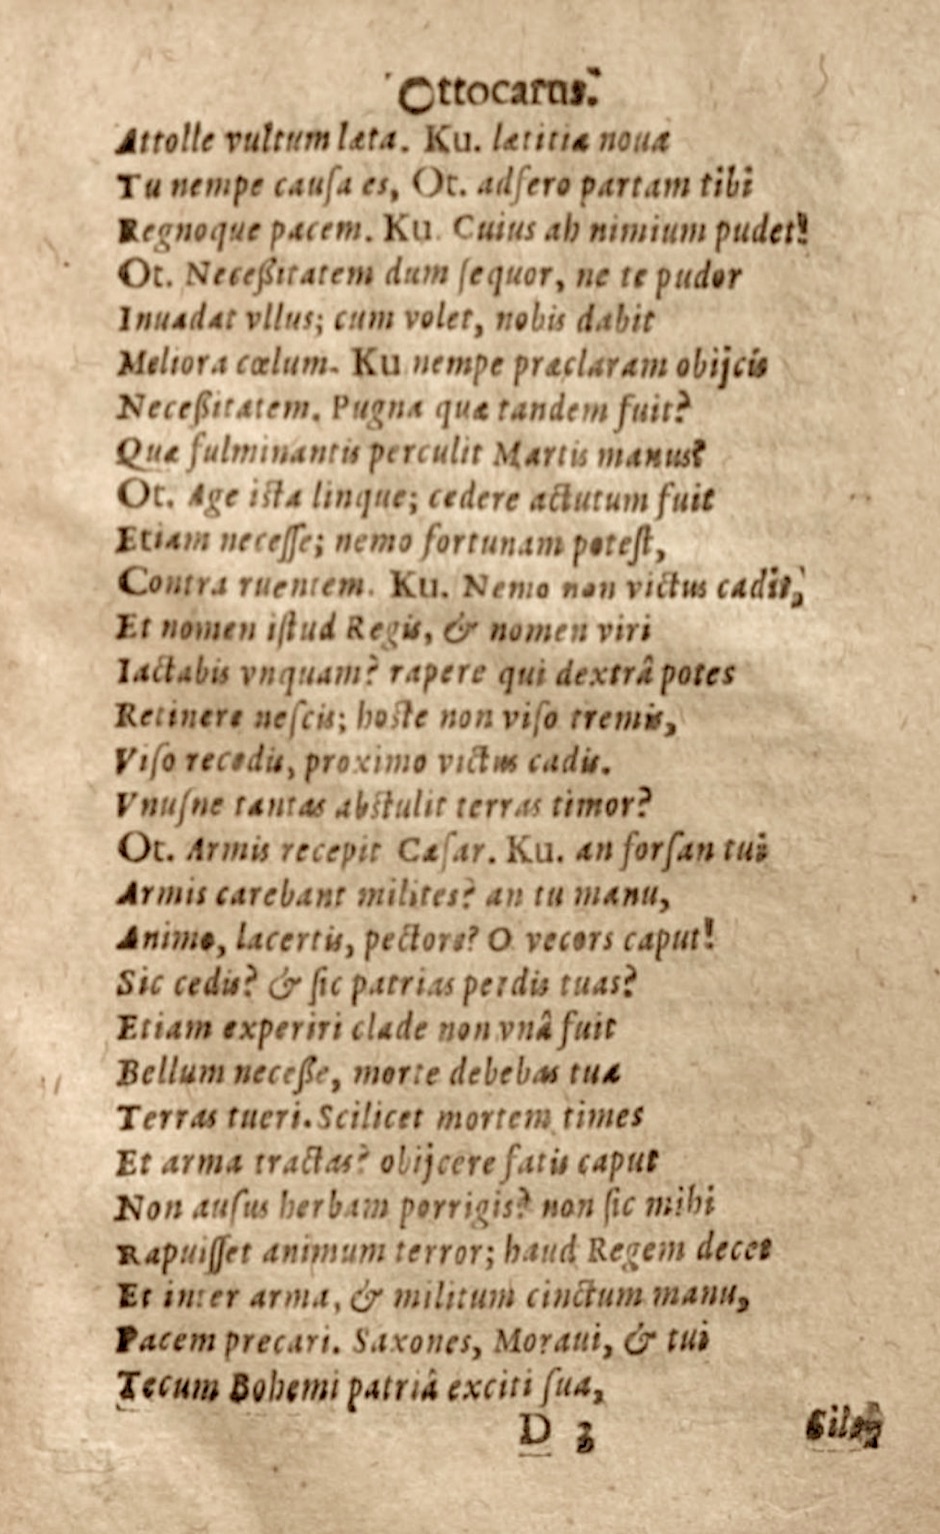 Ottocarus.
Attolle vultum læta. Ku. lætitiæ nouæ
Tu nempe causa es, Ot. adsero partam tibi
Regnoque pacem. Ku. Cuius ah nimium pudet!
Ot. Neceßitatem dum sequor, ne te pudor
Inuadat vllus; cum volet, nobis dabit
Meliora cœlum. Ku nempe præclaram obijcis
Neceßitatem. Pugna quæ tandem fuit?
Quæ fulminantis perculit Martis manus?
Ot. Age ista linque; cedere actutum fuit
Etiam necesse; nemo fortunam potest,
Contra ruentem. Ku. Nemo non victus cadit;
Et nomen istud Regis, & nomen viri
Iactabis vnquam? rapere qui dextrâ potes
Retinere nescis; hoste non viso tremis,
Viso recedis, proximo victus cadis.
Vnusne tantas abstulit terras timor?
Ot. Armis recepit Cæsar. Ku. an forsan tui
Armis carebant milites? an tu manu,
Animo, lacertis, pectore? O vecors caput!
Sic cedis? & sic patrias perdis tuas?
Etiam experiri clade non vnâ fuit
Bellum neceße, morte debebas tuæ
Terras tueri. Scilicet mortem times
Et arma tractas? obijcere fatis caput
Non ausus herbam porrigis? non sic mihi
Rapuisset animum terror; haud Regem decet
Et inter arma, & militum cinctum manu,
Pacem precari. Saxones, Moraui, & tui
Tecum Bohemi patriâ exciti sua,
D 3